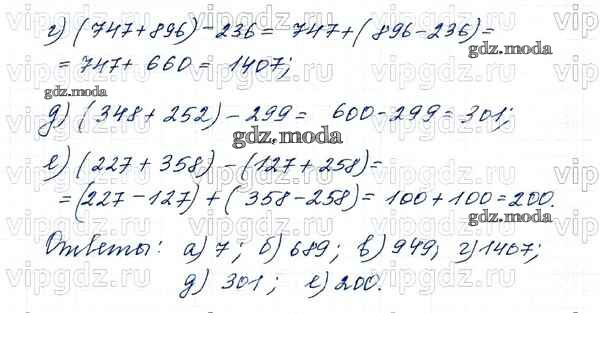 г) (747+896)-236= 747+(896-236)=
= 747+ 660 = 1407;
д) (348+252)-299= 600-299=301;
е) (227+358)-(127+258)=
=(227-127)+(358-258)=100+100=200.
Ответы: а) 7; б) 689; в) 949; г) 1407;
д) 301; е) 200.
gdz.moda
gdz.moda
gdz.moda
gdz.moda
gdz.moda
vipgdz.ru